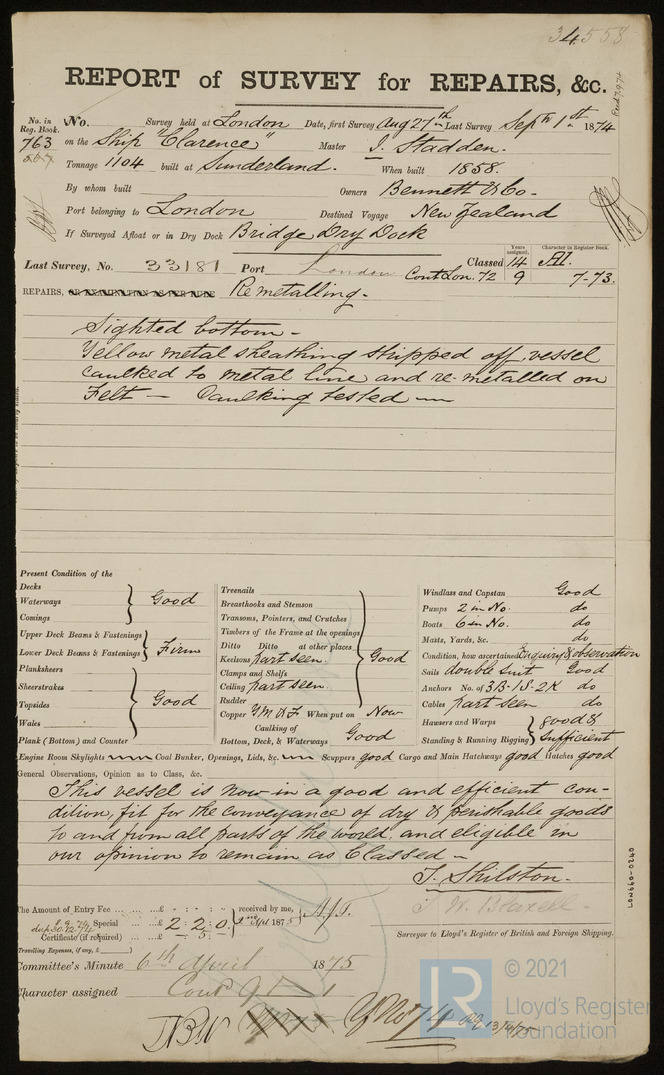 34558
REPORT of SURVEY for REPAIRS, &c.
No. in Reg. Book. No. Survey held at London Date, first Survey Aug 27th Last Survey Septr 1st 1874
763 on the Ship "Clarence" Master J. Stadden.
Tonnage 1104 built at Sunderland. When built 1858.
By whom built Owners Bennett & Co.
Port belonging to London Destined Voyage New Zealand
If Surveyed Afloat or in Dry Dock Bridge Dry Dock
Years assigned. Character in Register Book.
Last Survey, No. 33181 Port London Classed 14 A1.
Cont Lon. 72 9 7-73.
REPAIRS, OR EXAMINATION AS PER RULE Remetalling.
Sighted bottom -
Yellow metal sheathing stripped off, vessel
caulked to metal line and re-metalled on
Felt - Caulking tested
Present Condition of the
Decks
Waterways Good
Comings
Upper Deck Beams & Fastenings
Lower Deck Beams & Fastenings Firm
Planksheers
Sheerstrakes
Topsides Good
Wales
Plank (Bottom) and Counter
Treenails
Breasthooks and Stemson
Transoms, Pointers, and Crutches
Timbers of the Frame at the openings
Ditto Ditto at other places
Keelsons part seen. Good
Clamps and Shelfs
Ceiling part seen.
Rudder
Copper Y.M. & F. When put on Now
Caulking of
Bottom, Deck, & Waterways Good
Windlass and Capstan Good
Pumps 2 in No. do
Boats 6 in No. do
Masts, Yards, &c. do
Condition, how ascertained Enquiry & observation
Sails double suit Good
Anchors No. of 3B-1S-2K do
Cables part seen do
Hawsers and Warps good &
Standing & Running Rigging Sufficient
Engine Room Skylights Coal Bunker, Openings, Lids, &c. Scuppers good Cargo and Main Hatchways good Hatches good
General Observations, Opinion as to Class, &c.
This vessel is now in a good and efficient con-
dition, fit for the conveyance of dry & perishable goods
to and from all parts of the world, and eligible in
our opinion to remain as Classed -
T. Shilston.
The Amount of Entry Fee £
Special £ 2 : 2 : 0. received by me,
Certificate (if required) £ 5
Travelling Expenses, if any, £
Surveyor to Lloyd's Register of British and Foreign Shipping.
Committee's Minute 6th April 1875
Character assigned Contd 9
13/4/75
LON660-0240
© 2021
Lloyd's Register
Foundation